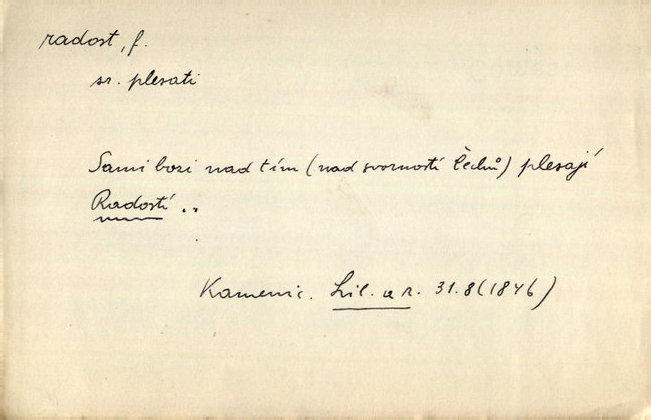 radost, f.
sr. plesati
Sami bozi nad tím (nad svorností Čechů) plesají
Radostí ..
Kamenic. Lil. a r. 31.8 (1846)